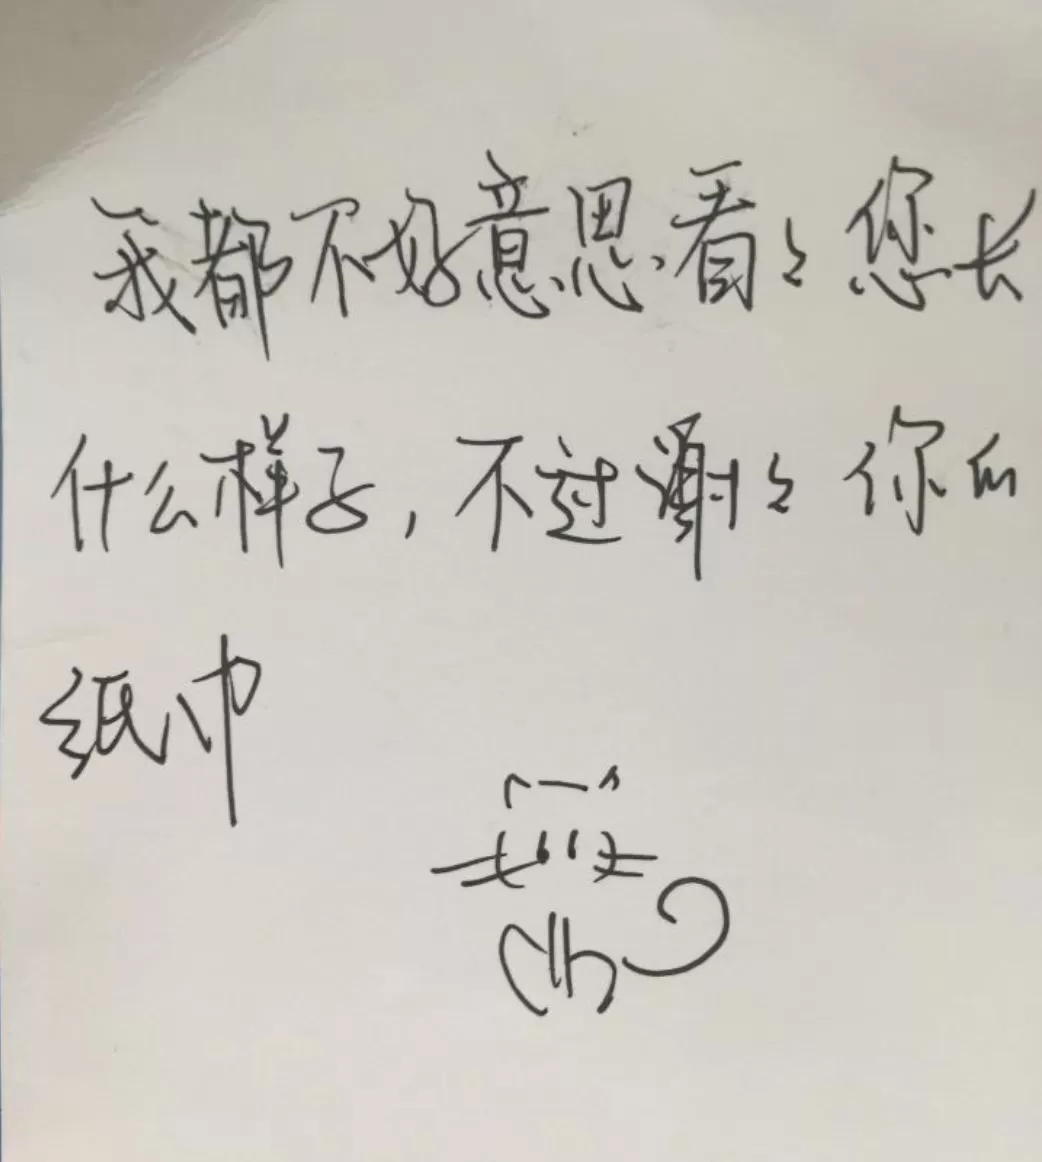 我都不好意思看々您长
什么样子，不过谢々你的
纸巾